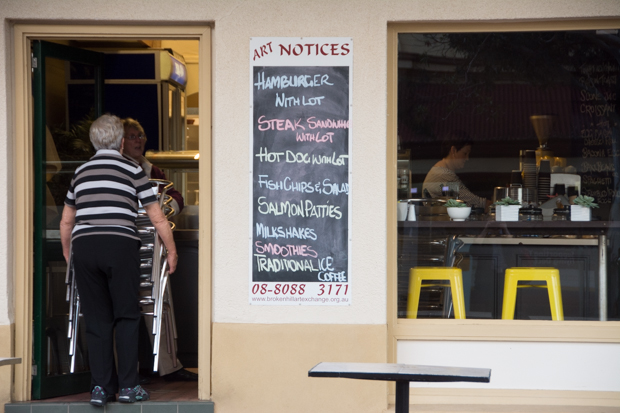 ART NOTICES
HAMBURGER
WITH LOT
STEAK SANDWHICH
WITH LOT
HOT DOG WITH LOT
FISH CHIPS & SALAD
SALMON PATTIES
MILKSHAKES
SMOOTHIES
TRADITIONAL ICE
COFFEE
08-8088 3171
www.brokenhillartexchange.org.au